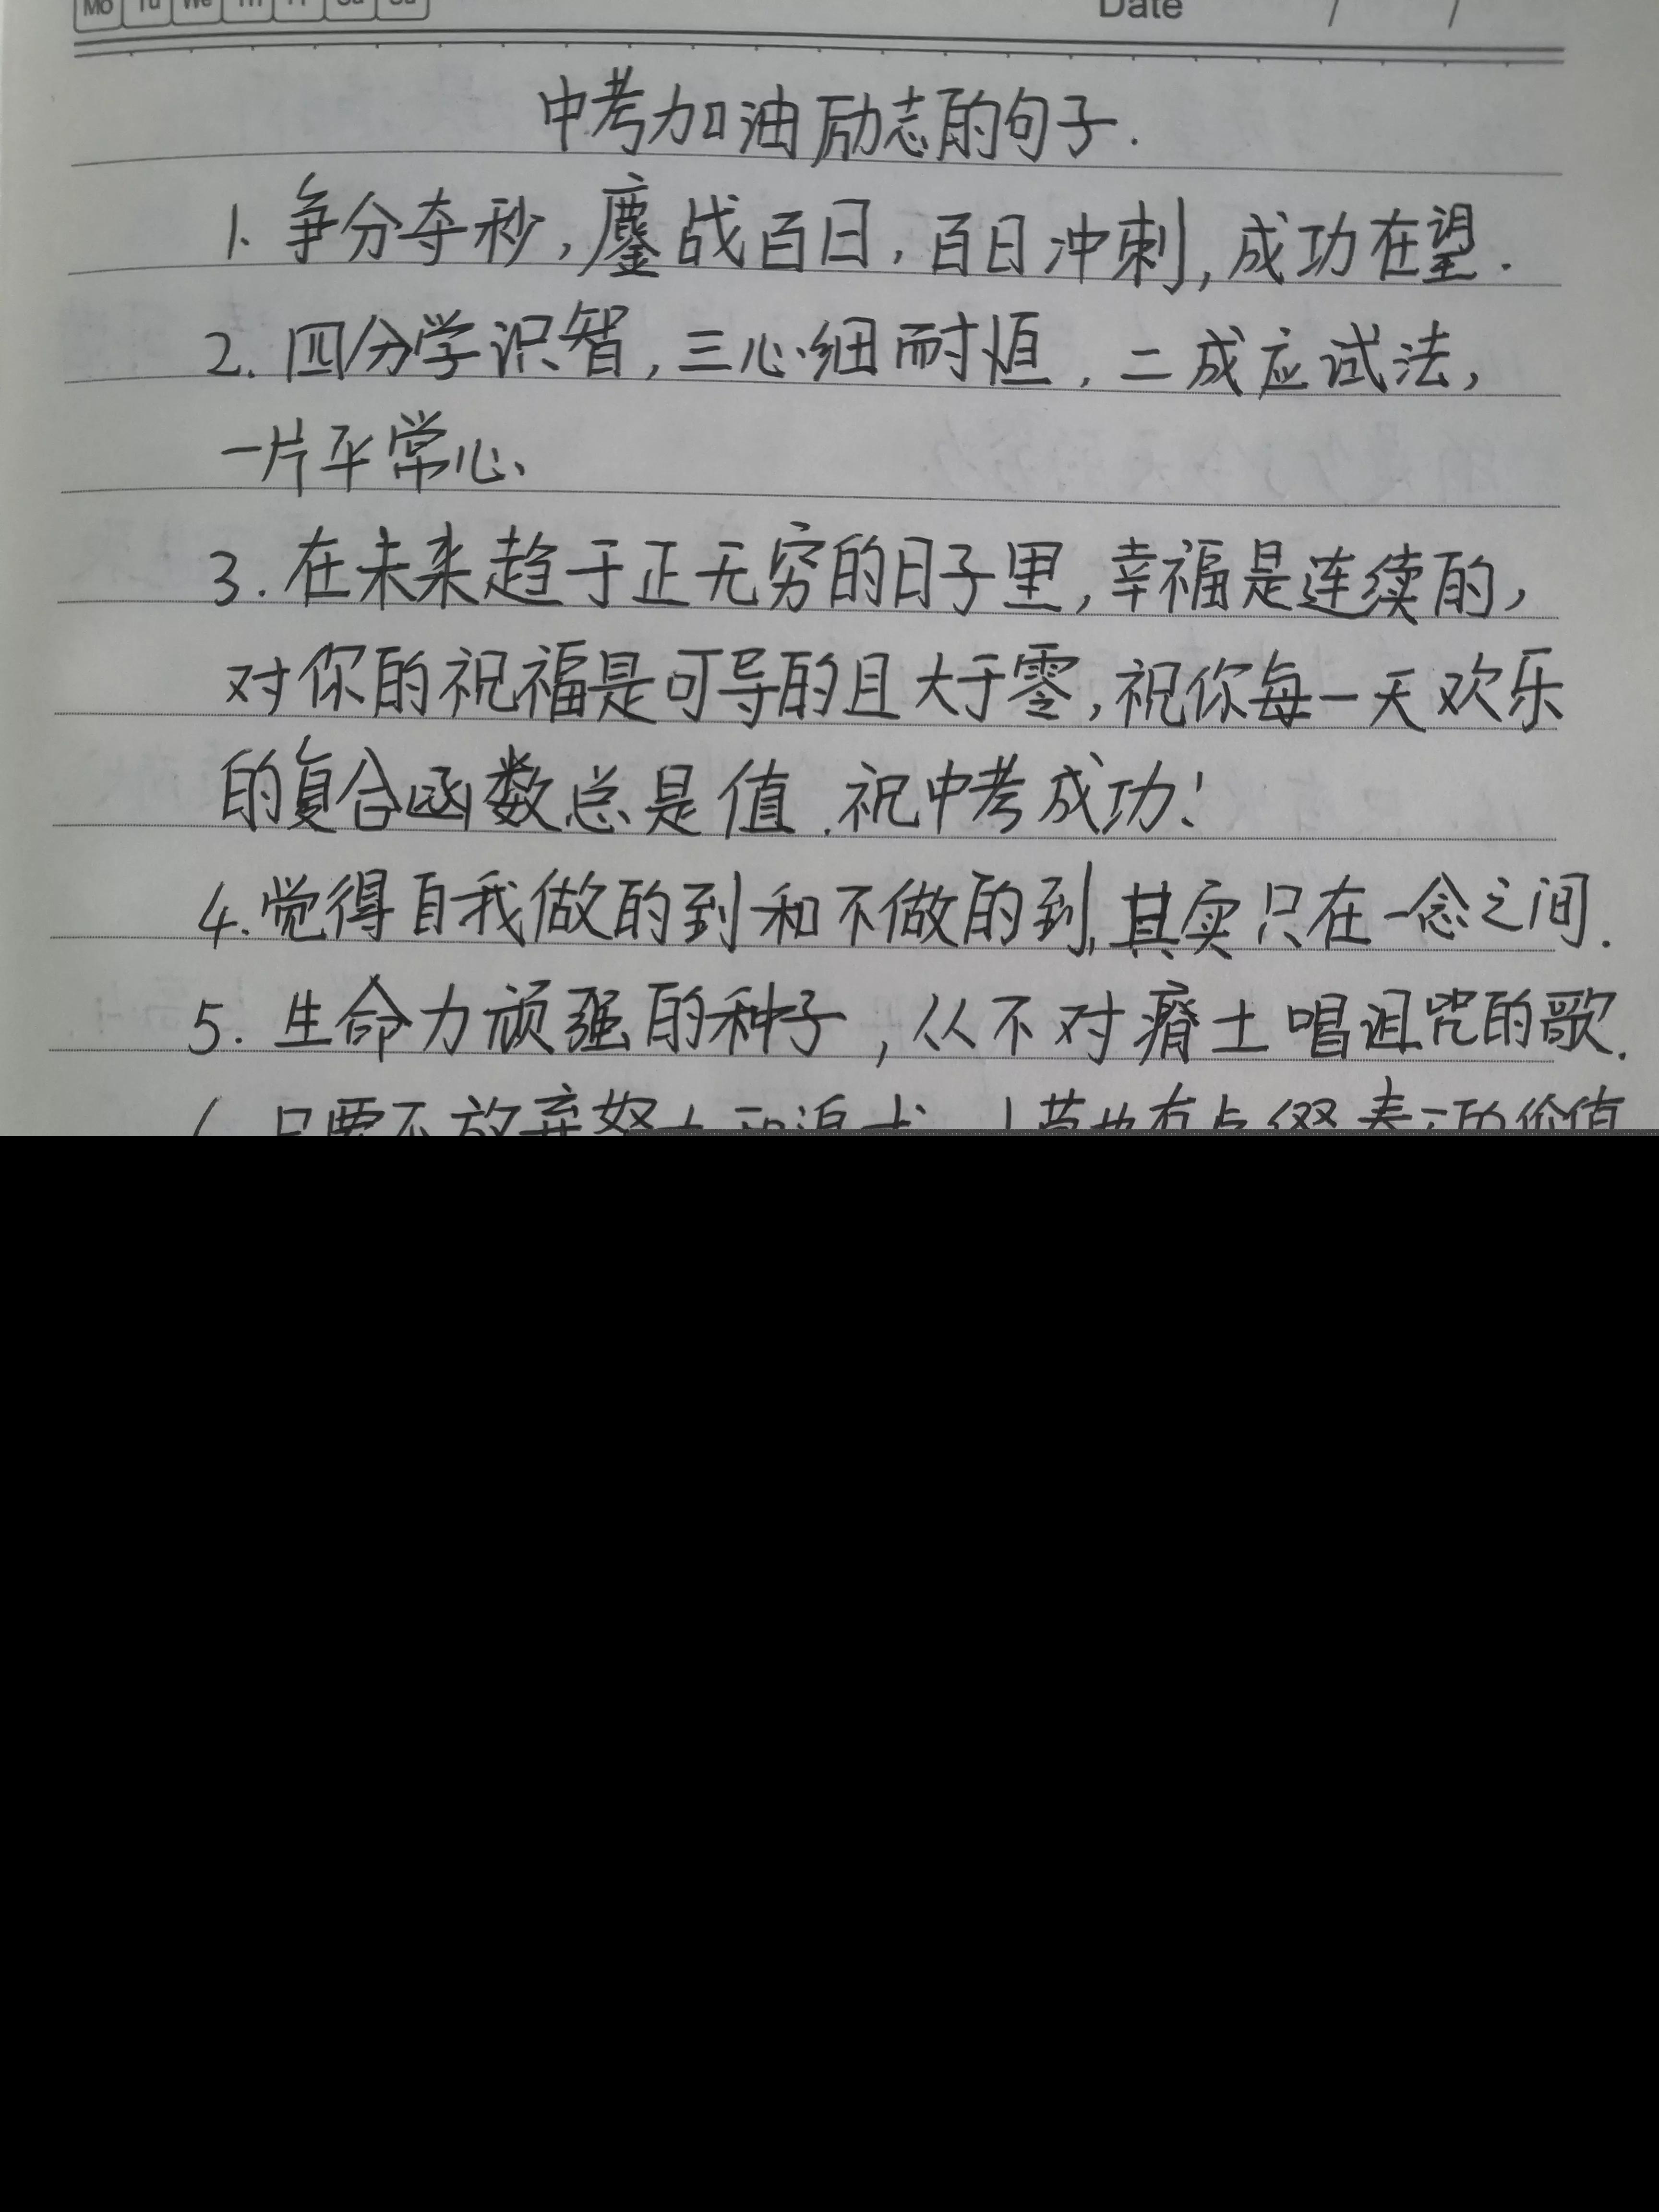 Mo Tu We Th Fr Sa Su
Date / /
中考加油励志的句子.
1. 争分夺秒,鏖战百日,百日冲刺,成功在望.
2. 四分学识智,三心细耐恒,二成应试法,
一片平常心、
3. 在未来趋于正无穷的日子里,幸福是连续的,
对你的祝福是可导的且大于零,祝你每一天欢乐
的复合函数总是值.祝中考成功!
4. 觉得自我做的到和不做的到,其实只在一念之间.
5. 生命力顽强的种子,从不对瘠土唱诅咒的歌.
只要不放弃努力和追求 小草也有点缀春天的价值